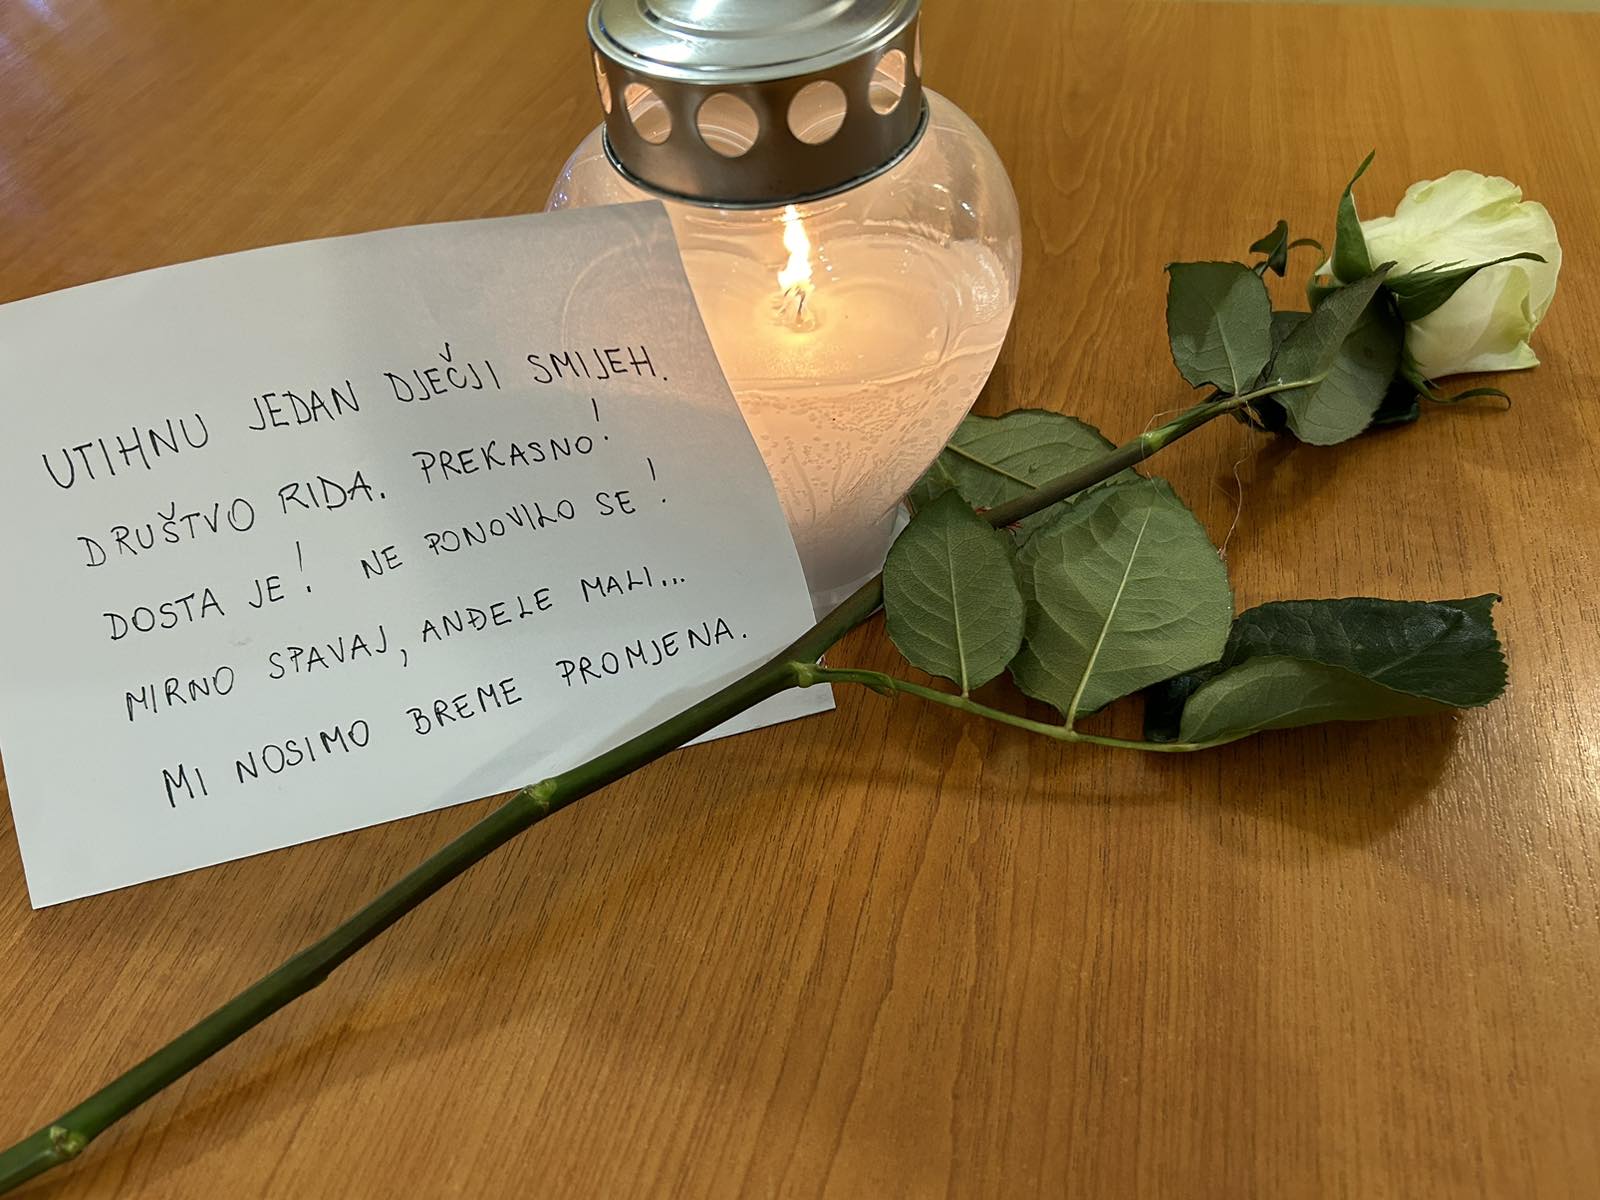 UTIHNU JEDAN DJEČJI SMIJEH.
DRUŠTVO RIDA. PREKASNO!
DOSTA JE! NE PONOVILO SE!
MIRNO SPAVAJ, ANĐELE MALI...
MI NOSIMO BREME PROMJENA.